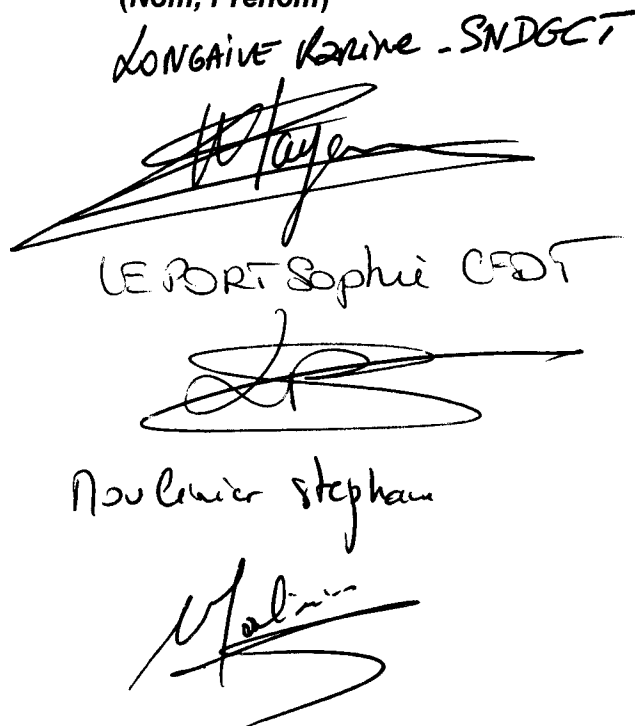 (Nom, Prénom)
LONGAIVE Karine - SNDGCT
LE PORT Sophie CFDT
Moulinier Stephane